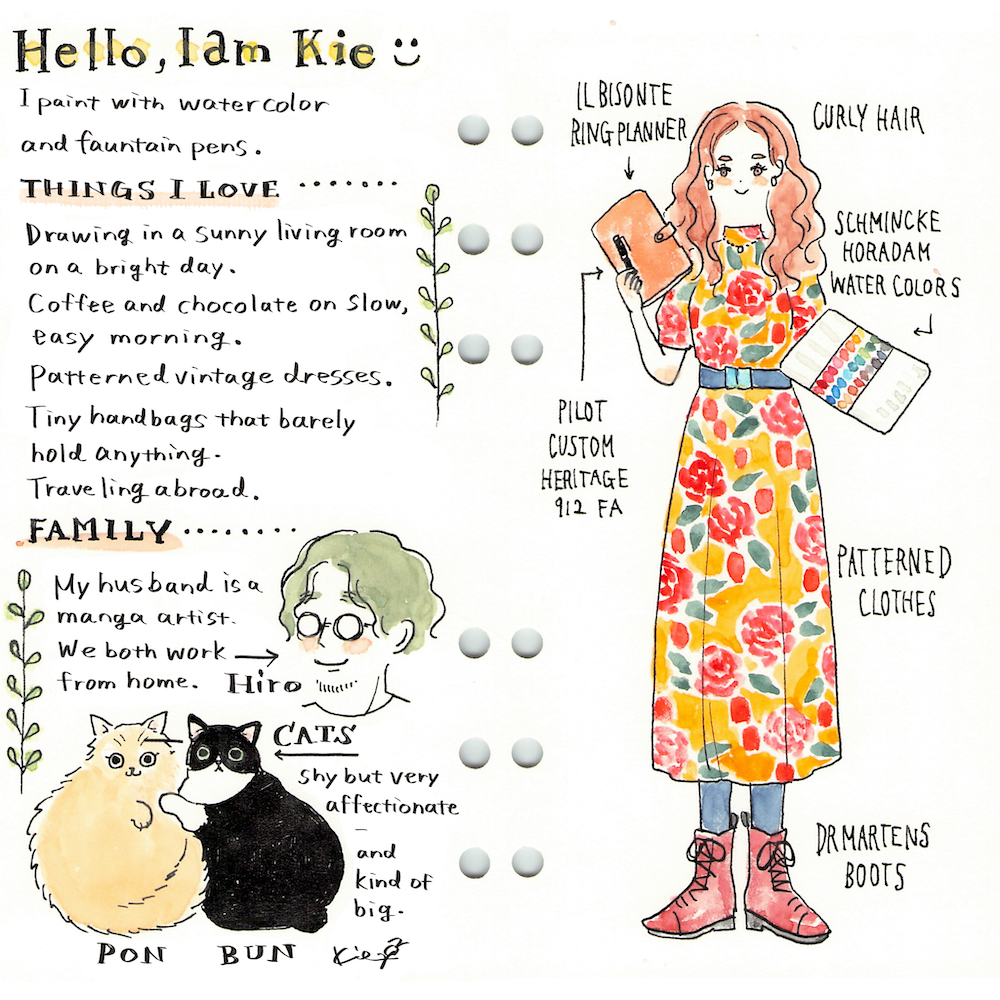 Hello, I am Kie
I paint with watercolor
and fauntain pens.
THINGS I LOVE .......
Drawing in a sunny living room
on a bright day.
Coffee and chocolate on slow,
easy morning.
Patterned vintage dresses.
Tiny handbags that barely
hold anything.
Traveling abroad.
FAMILY ........
My husband is a
manga artist.
We both work
from home.
Hiro
CATS
Shy but very
affectionate
and
kind of
big.
PON
BUN
Kie
IL BISONTE
RING PLANNER
CURLY HAIR
SCHMINCKE
HORADAM
WATER COLORS
PILOT
CUSTOM
HERITAGE
912 FA
PATTERNED
CLOTHES
DR MARTENS
BOOTS